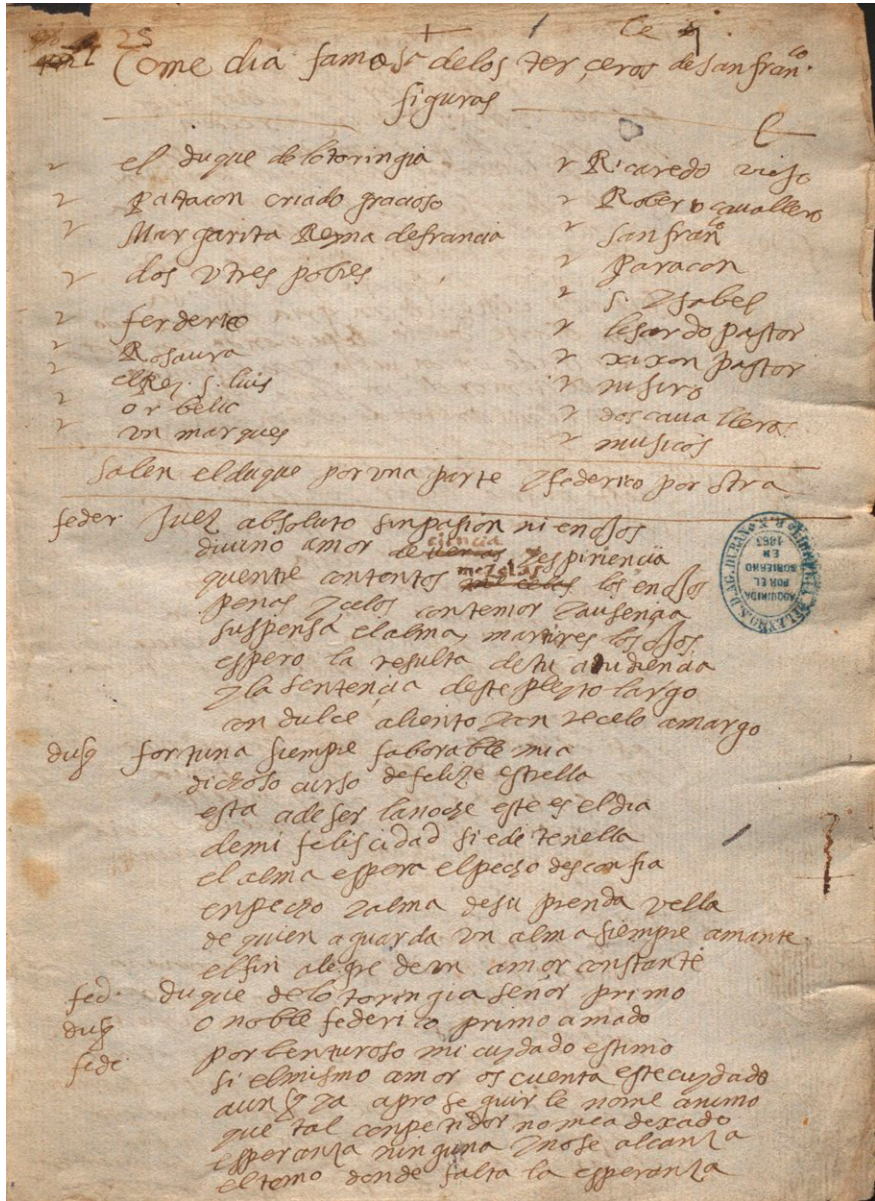 25
Comedia famosa de los terceros de san fran.co
figuras
el duque de lotoringia
patacon criado gracioso
Margarita Reyna de francia
dos v tres pobres
ferderico
Rosaura
el Rey. s. luis
vn marques
Ricaredo viejo
Roberto cavallero
san fran.co
paracon
s. ysabel
lisardo pastor
xixon pastor
nisiro
dos cavalleros
musicos
salen el duque por vna parte y federico por otra
feder. Juez absoluto sin pasion ni enojos
divino amor de ciencia y espiriencia
que entre contentos mezclas los enojos
penas y celos con temor y ausencia
suspensa el alma, martires los ojos
espero la resulta de tu audiencia
y la sentencia deste pleyto largo
con dulce aliento y con recelo amargo
duq fortuna siempre faborable mia
dichoso curso de felize estrella
esta a de ser la noche este es el dia
de mi feliscidad si e de tenella
el alma espera el pecho desconfia
en pecho y alma de su prenda vella
de quien aguarda vn alma siempre amante
el fin alegre de vn amor constante
fed. duque de lotoringia señor primo
duq o noble federico primo amado
fede por benturoso mi cuydado estimo
si el mismo amor os cuenta este cuydado
aunq ya a proseguirle no me animo
que tal conpetidor no me a dexado
esperanza ninguna y no se alcanza
el temo donde falta la esperanza
ADQUIRIDA
POR EL
GOBIERNO
EN
1863